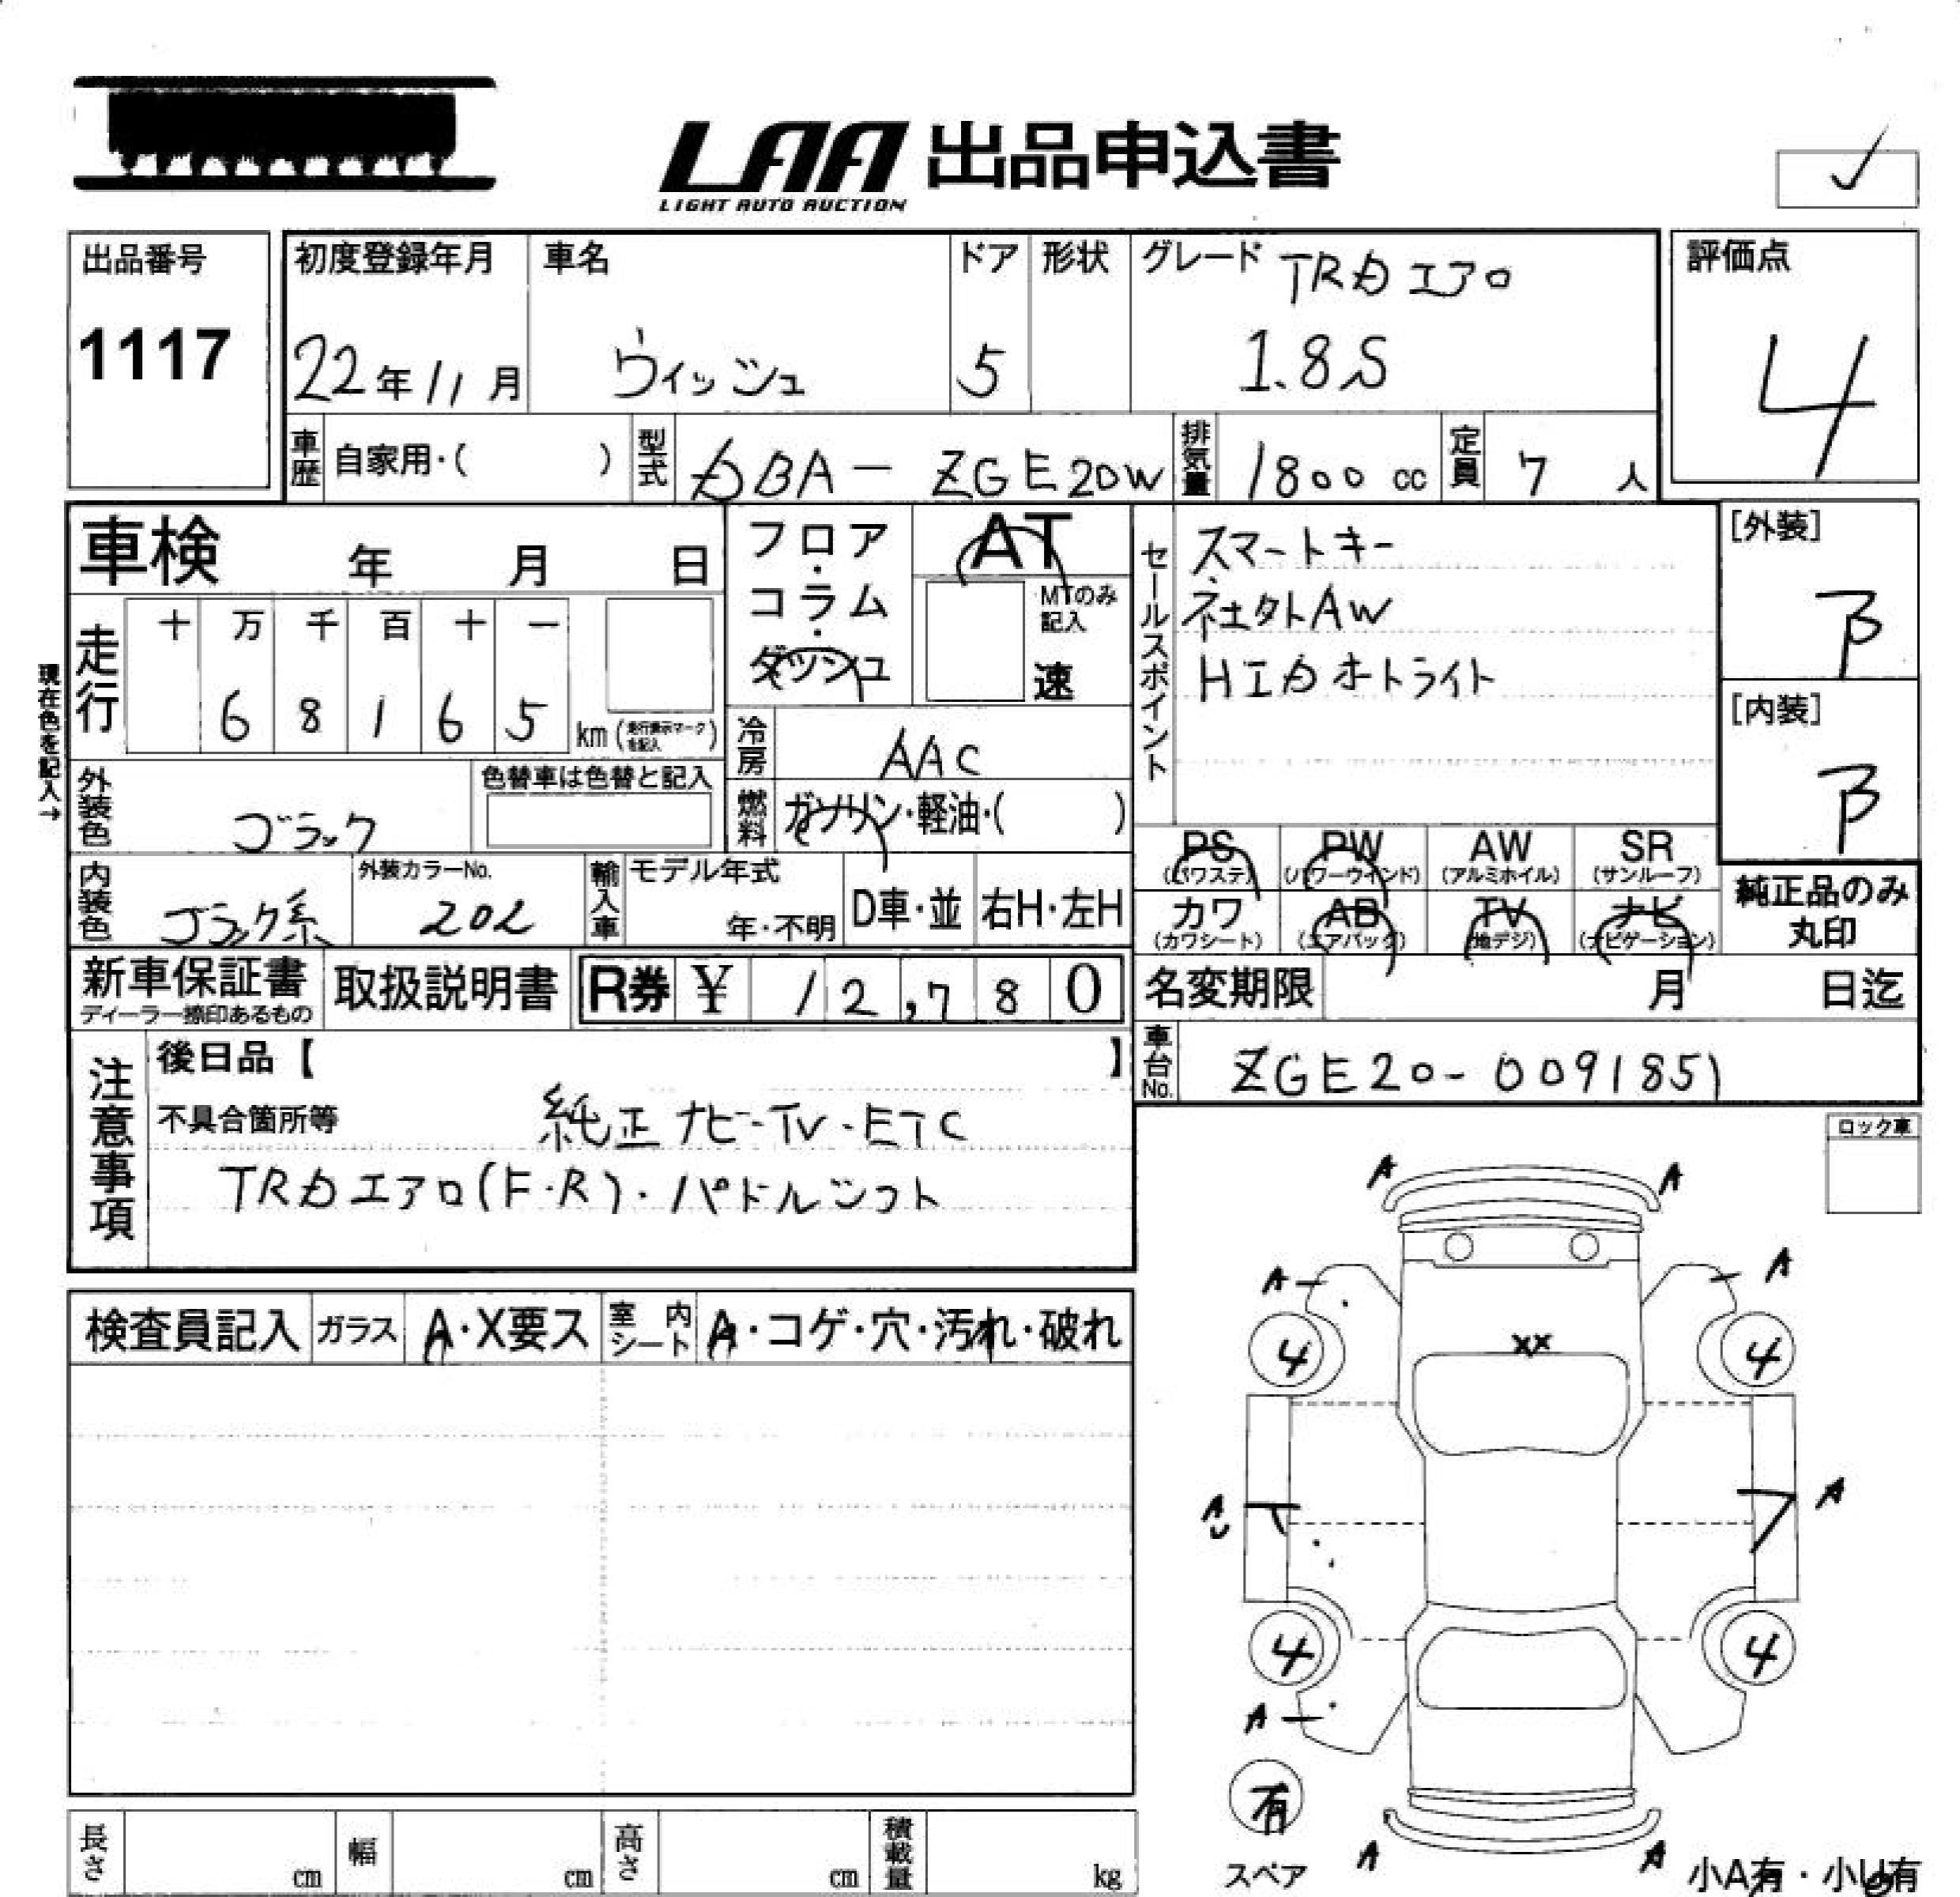 LAA 出品申込書
LIGHT AUTO AUCTION
出品番号
1117
初度登録年月
22年11月
車名
ウィッシュ
ドア
5
形状
グレード TRDエアロ
1.8S
評価点
4
車歴 自家用・( )
型式 DBA-ZGE20W
排気量 1800 cc
定員 7 人
車検 年 月 日
フロア・コラム・ダッシュ
AT
MTのみ記入
速
セールスポイント
スマートキー
HIDオートライト
[外装]
B
[内装]
B
現在色を記入→
走行
十 万 千 百 十 一
6 8 1 6 5 km
冷房 AAC
燃料 ガソリン・軽油・( )
外装色 ブラック
色替車は色替と記入
内装色 ブラック系
外装カラーNo.
202
輸入車
モデル年式
年・不明
D車・並
右H・左H
PS (パワステ)
PW (パワーウインド)
AW (アルミホイル)
SR (サンルーフ)
カワ (カワシート)
AB (エアバッグ)
TV (地デジ)
ナビ (ナビゲーション)
純正品のみ丸印
新車保証書
ディーラー捺印あるもの
取扱説明書
R券 ¥ 12,780
名変期限 月 日迄
車台No. ZGE20-0091851
注意事項
後日品【 】
不具合箇所等 純正ナビ・TV・ETC
TRDエアロ(F・R)・パドルシフト
ロック車
検査員記入
ガラス A・X要ス
室内シート A・コゲ・穴・汚れ・破れ
A A
A A
XX
4 4
A A
U
4 4
A
有
スペア
A A
小A有・小U有
長さ cm
幅 cm
高さ cm
積載量 kg